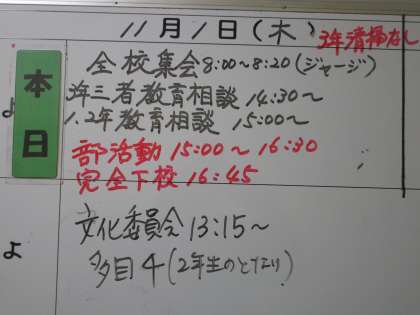 11月1日(木)
3年清掃なし
本日
全校集会8:00〜8:20(ジャージ)
3年三者教育相談 14:30〜
1.2年教育相談 15:00〜
部活動 15:00〜16:30
完全下校 16:45
文化委員会 13:15〜
多目4(2年生のとなり)
よ
よ